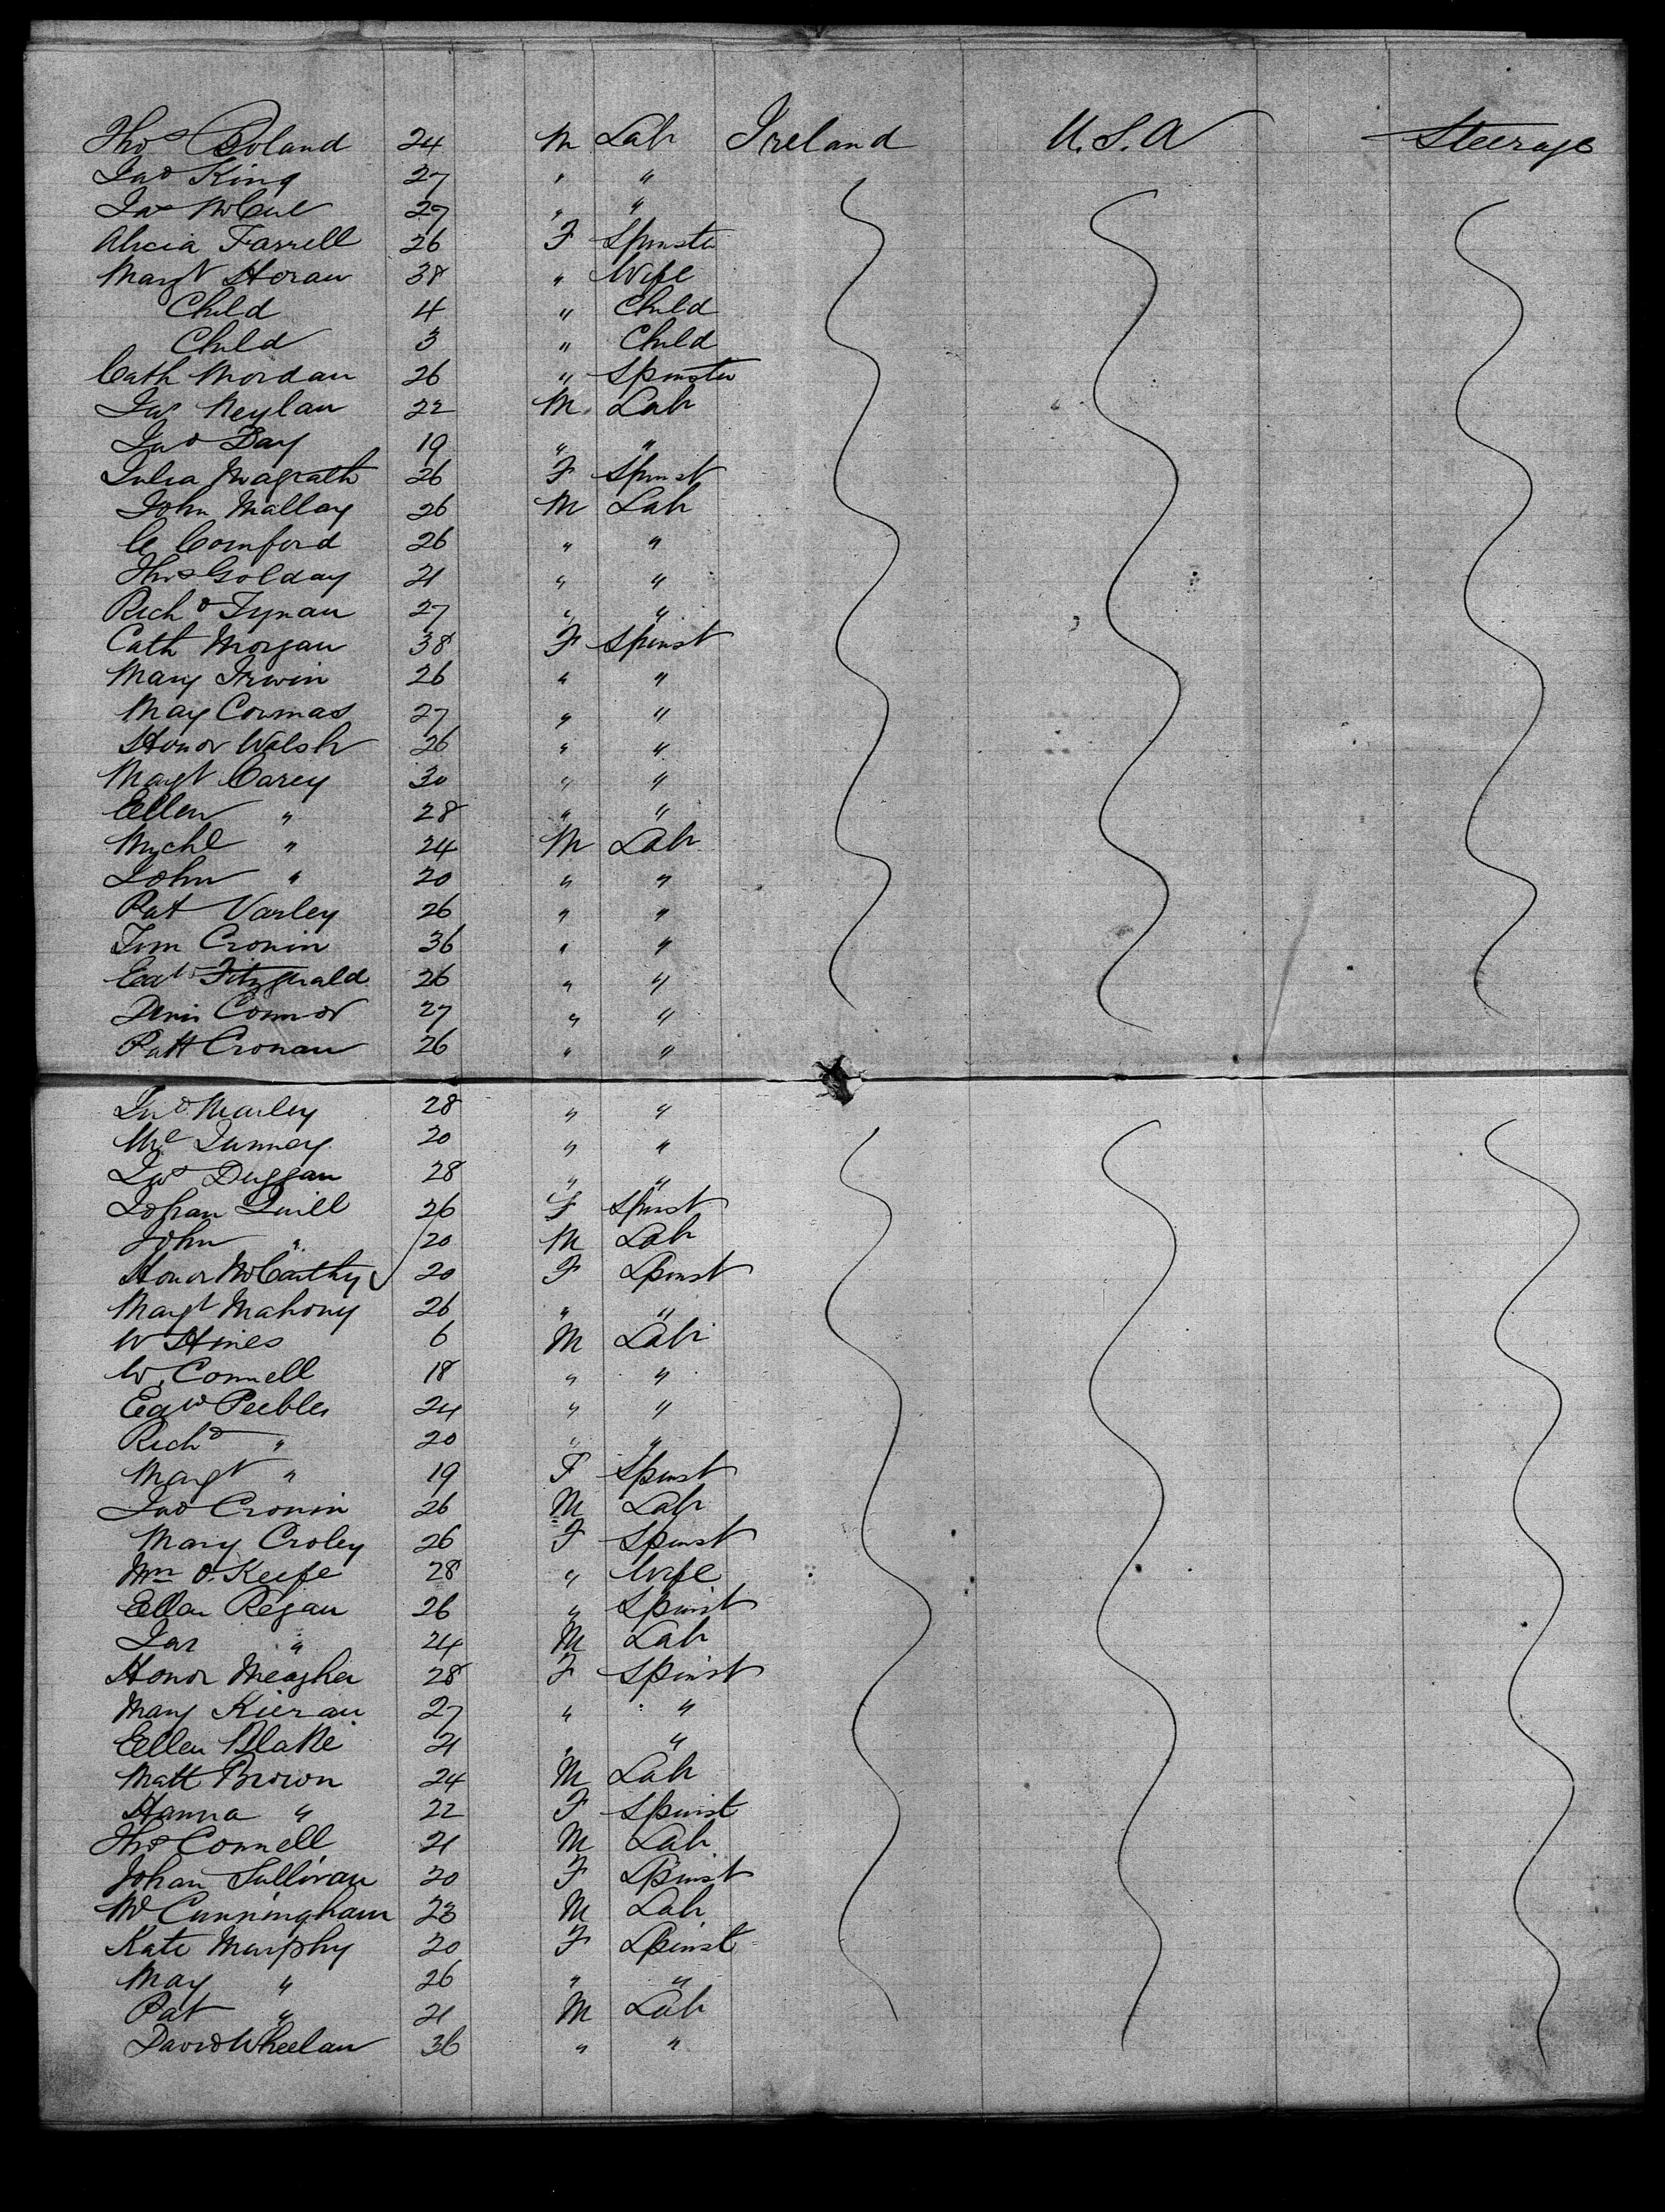 Thos Boland 24 M Lab Ireland U.S.A Steerage
Jno King 27 " "
Jas McCue 27 " "
Alicia Farrell 26 F Spinster
Margt Horan 38 " Wife
Child 4 " Child
Child 3 " Child
Cath Mordan 26 " Spinster
Jas Neylan 22 M Lab
Jno Day 19 " "
Julia Magrath 26 F Spinst
John Mallay 26 M Lab
C Comford 26 " "
Thos Golday 21 " "
Richd Tynan 27 " "
Cath Morgan 38 F Spinst
Mary Irwin 26 " "
May Cormas 27 " "
Honor Walsh 26 " "
Margt Carey 30 " "
Ellen " 28 " "
Mychl " 24 M Lab
John " 20 " "
Pat Varley 26 " "
Tim Cronin 36 " "
Fitzgerald 26 " "
Denis Connor 27 " "
Patt Cronan 26 " "
Jno Marley 28 " "
20 " "
Jas Duggan 28 " "
Johan Quill 26 F Spinst
John " 20 M Lab
Honor McCarthy 20 F Spinst
Margt Mahony 26 " "
W Hines 6 M Lab
W. Connell 18 " "
Edwd Peebles 24 " "
Richd " 20 " "
Margt " 19 F Spinst
Jno Cronin 26 M Lab
Mary Croley 26 F Spinst
Mrs O.Keefe 28 " Wife
Ellen Regan 26 " Spinst
Jas " 24 M Lab
Honor Meagher 28 F Spinst
Mary Kieran 27 " "
Ellen Blake 21 " "
Matt Brown 24 M Lab
Hanna " 22 F Spinst
Thos Connell 21 M Lab
Johan Sullivan 20 F Spinst
Ml Cunningham 23 M Lab
Kate Murphy 20 F Spinst
May " 26 " "
Pat " 21 M Lab
David Wheelan 36 " "